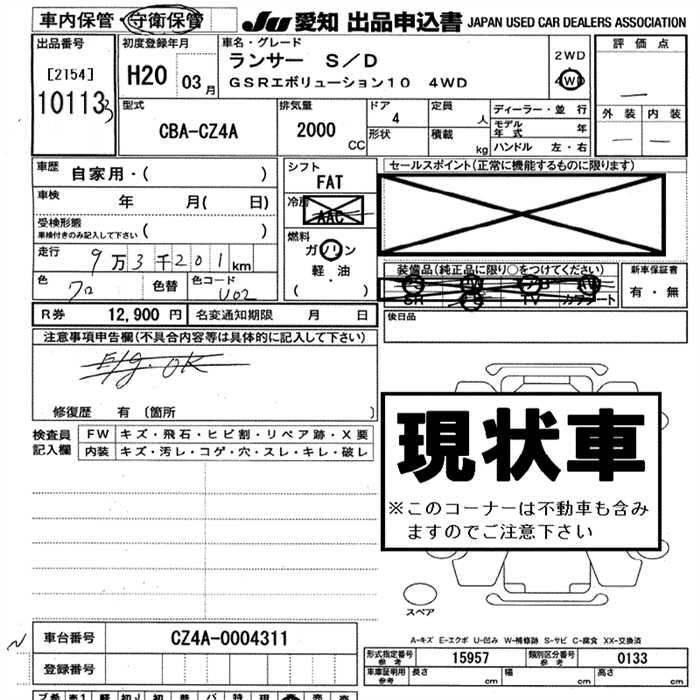 車内保管・守衛保管
JU 愛知 出品申込書 JAPAN USED CAR DEALERS ASSOCIATION
出品番号
[2154]
101133
初度登録年月
H20 03月
車名・グレード
ランサー S/D
GSRエボリューション10 4WD
2WD
4WD
評価点
—
外装 内装
— —
型式
CBA-CZ4A
排気量
2000
CC
ドア
4
形状
定員
人
積載
kg
ディーラー・並行
モデル年式 年
ハンドル 左・右
車歴 自家用・( )
車検 年 月( 日)
受検形態
車検付きのみ記入して下さい ( )
走行 9万3千201km
色 クロ 色替 色コード U02
シフト
FAT
冷房
AAC
燃料
ガソリン
軽・油
( )
セールスポイント(正常に機能するものに限ります)
装備品(純正品に限り○をつけてください)
SR TV カワシート
新車保証書
有・無
後日品
R券 12,900円 名変通知期限 月 日
注意事項申告欄(不具合内容等は具体的に記入して下さい)
E/g. OK
修復歴 有 〔箇所 〕
検査員記入欄
FW キズ・飛石・ヒビ割・リペア跡・X要
内装 キズ・汚レ・コゲ・穴・スレ・キレ・破レ
現状車
※このコーナーは不動車も含み
ますのでご注意下さい
スペア
A-キズ E-エクボ U-凹み W-補修跡 S-サビ C-腐食 XX-交換済
車台番号 CZ4A-0004311
登録番号
形式指定番号 参考 15957 類別区分番号 参考 0133
車庫証明用 参考 長さ cm 幅 cm 高さ cm